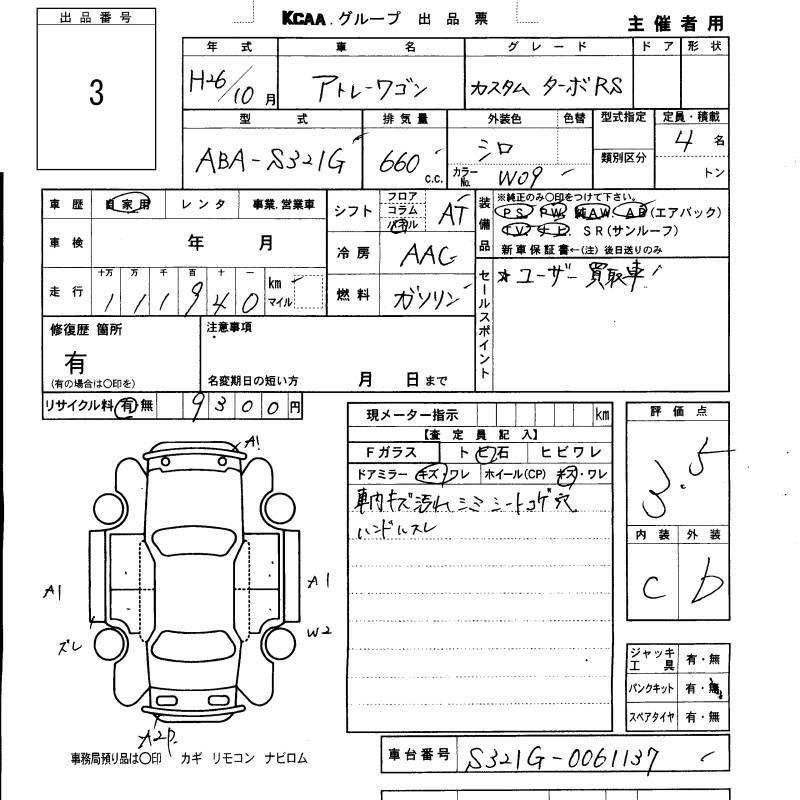 KCAA.グループ 出品票
主催者用
出品番号
3
年式 車名 グレード ドア 形状
H26/10月 アトレーワゴン カスタム ターボRS
型式 排気量 外装色 色替 型式指定 定員・積載
ABA-S321G 660 c.c. シロ 類別区分 4名
カラーNo. W09 トン
車歴 自家用 レンタ 事業.営業車
シフト フロア コラム パネル AT
装備品 ※純正のみ〇印をつけて下さい。
PS, PW, 純AW, AB(エアバック)
TV, ナビ, SR(サンルーフ)
新車保証書←(注) 後日送りのみ
車検 年 月
冷房 AAC
走行 十万 万 千 百 十 一
1 1 1 9 4 0 km マイル
燃料 ガソリン
セールスポイント ☆ユーザー買取車
修復歴 箇所
有
(有の場合は〇印を)
注意事項
名変期日の短い方 月 日まで
リサイクル料 有・無 9300円
現メーター指示 km
【査定員記入】
Fガラス トビ石 ヒビワレ
ドアミラー キズ・ワレ ホイール(CP) キズ・ワレ
車内キズ汚れシミ シートコゲ穴
ハンドルスレ
評価点
3.5
内装 外装
C b
A1
A1
A1
ズレ
W2
A2P.
ジャッキ工具 有・無
パンクキット 有・無
スペアタイヤ 有・無
事務局預り品は〇印 カギ リモコン ナビロム
車台番号 S321G-0061137